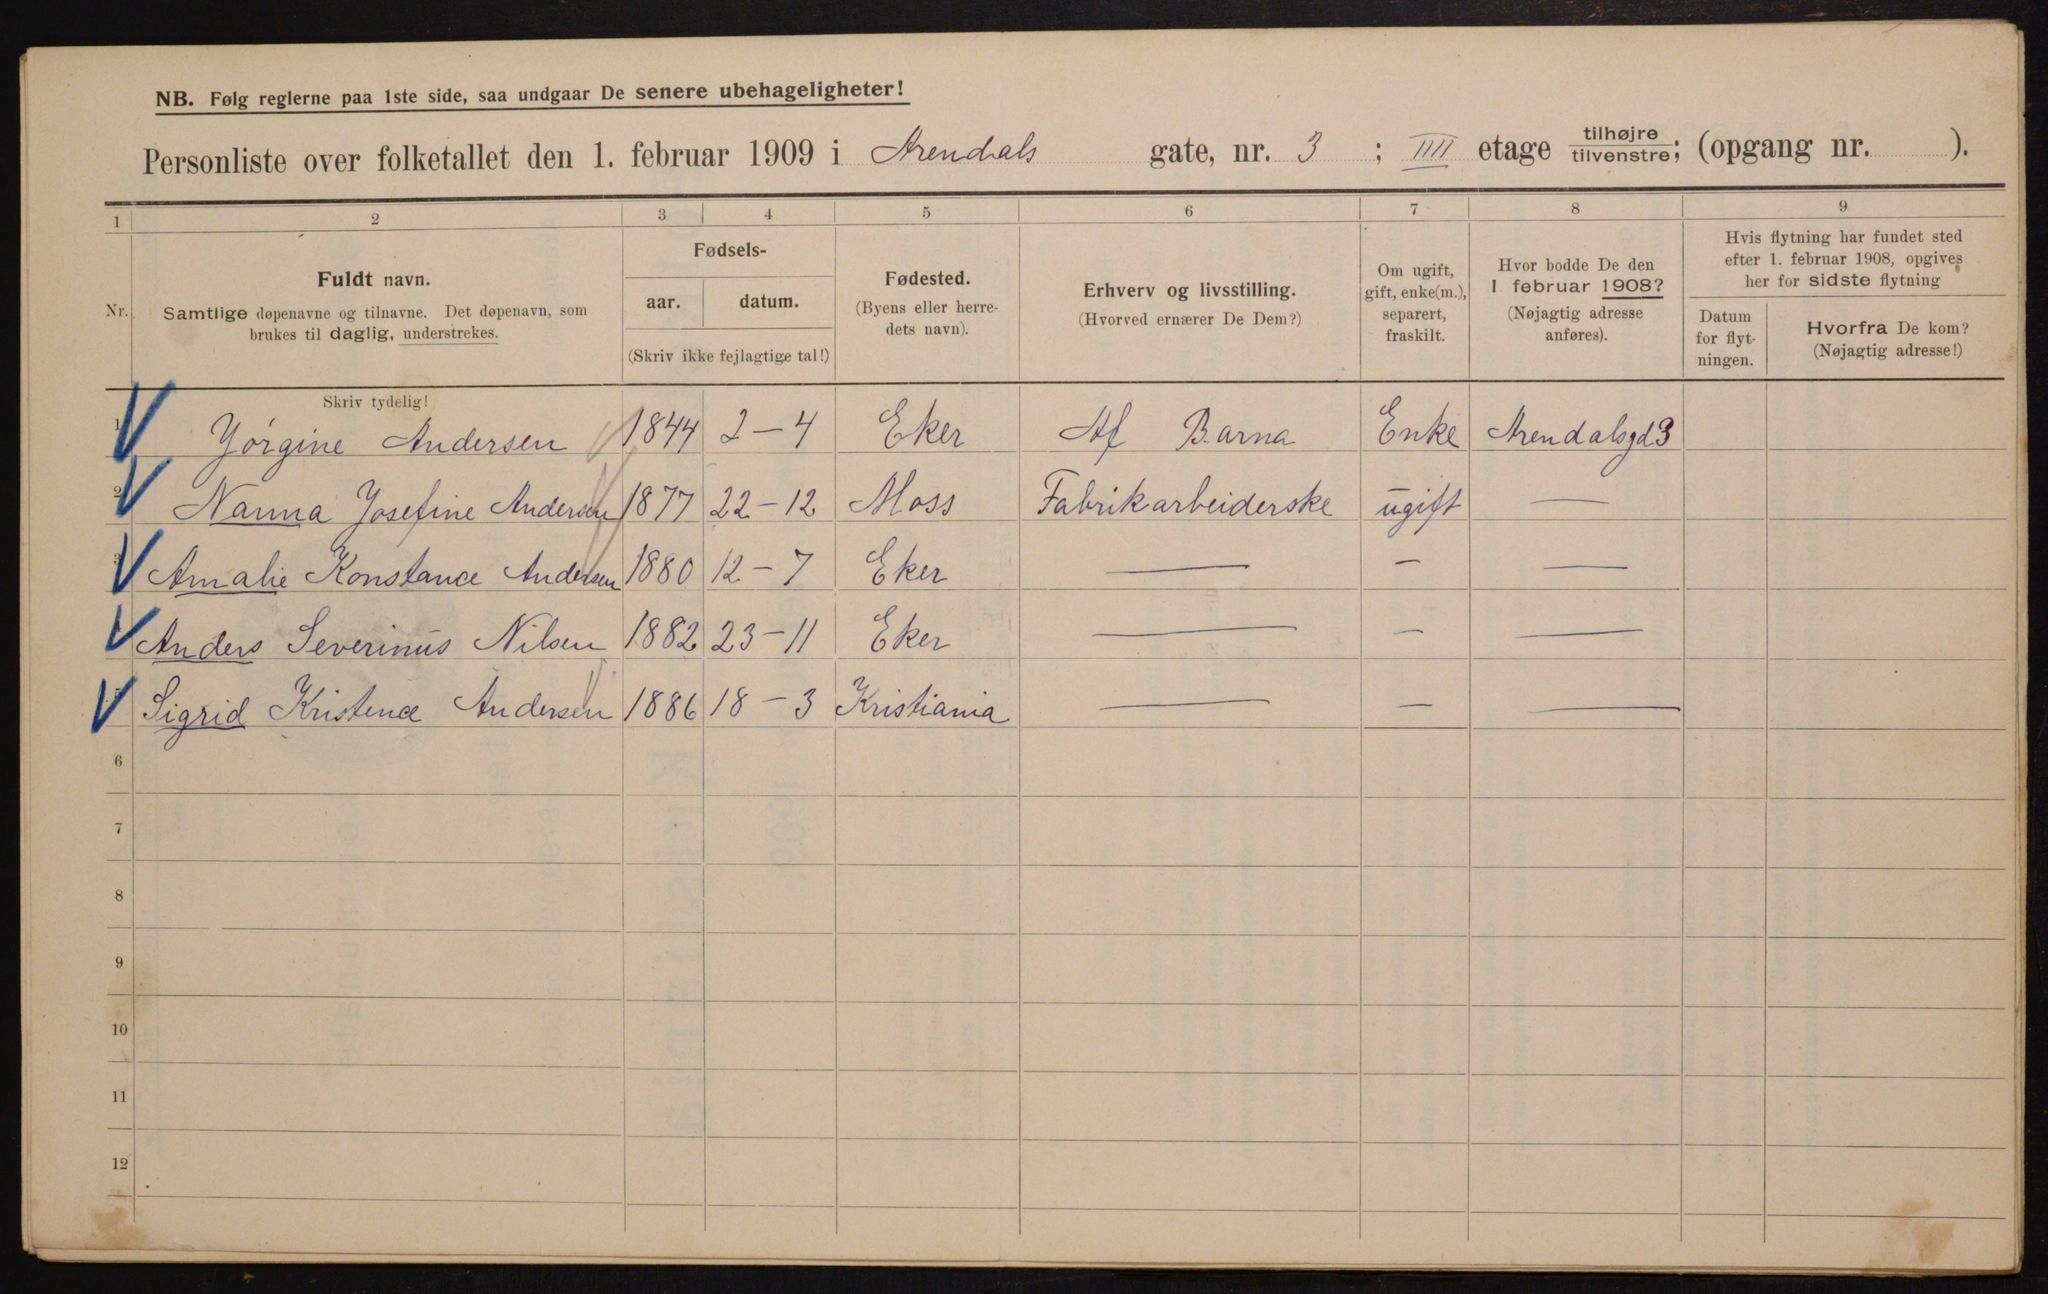 NB. Følg reglerne paa 1ste side, saa undgaar De senere ubehageligheter!
Personliste over folketallet den 1. februar 1909 i Arendals gate, nr. 3 ; IIII etage tilhøjre/tilvenstre; (opgang nr. ).
1 2 3 4 5 6 7 8 9
Nr.
Fuldt navn.
Samtlige døpenavne og tilnavne. Det døpenavn, som
brukes til daglig, understrekes.
Fødsels-
aar. datum.
(Skriv ikke fejlagtige tal!)
Fødested.
(Byens eller herre-
dets navn).
Erhverv og livsstilling.
(Hvorved ernærer De Dem?)
Om ugift,
gift, enke(m.),
separert,
fraskilt.
Hvor bodde De den
1 februar 1908?
(Nøjagtig adresse
anføres).
Hvis flytning har fundet sted
efter 1. februar 1908, opgives
her for sidste flytning
Datum
for flyt-
ningen.
Hvorfra De kom?
(Nøjagtig adresse!)
Skriv tydelig!
1 Yørgine Andersen 1844 2-4 Eker Af Barna Enke Arendalsgd 3
2 Nanna Josefine Andersen 1877 22-12 Moss Fabrikarbeiderske ugift —
3 Amalie Konstance Andersen 1880 12-7 Eker — — —
Anders Severinus Nilsen 1882 23-11 Eker — — —
Sigrid Kristence Andersen 1886 18-3 Kristiania — — —
6
7
8
9
10
11
12